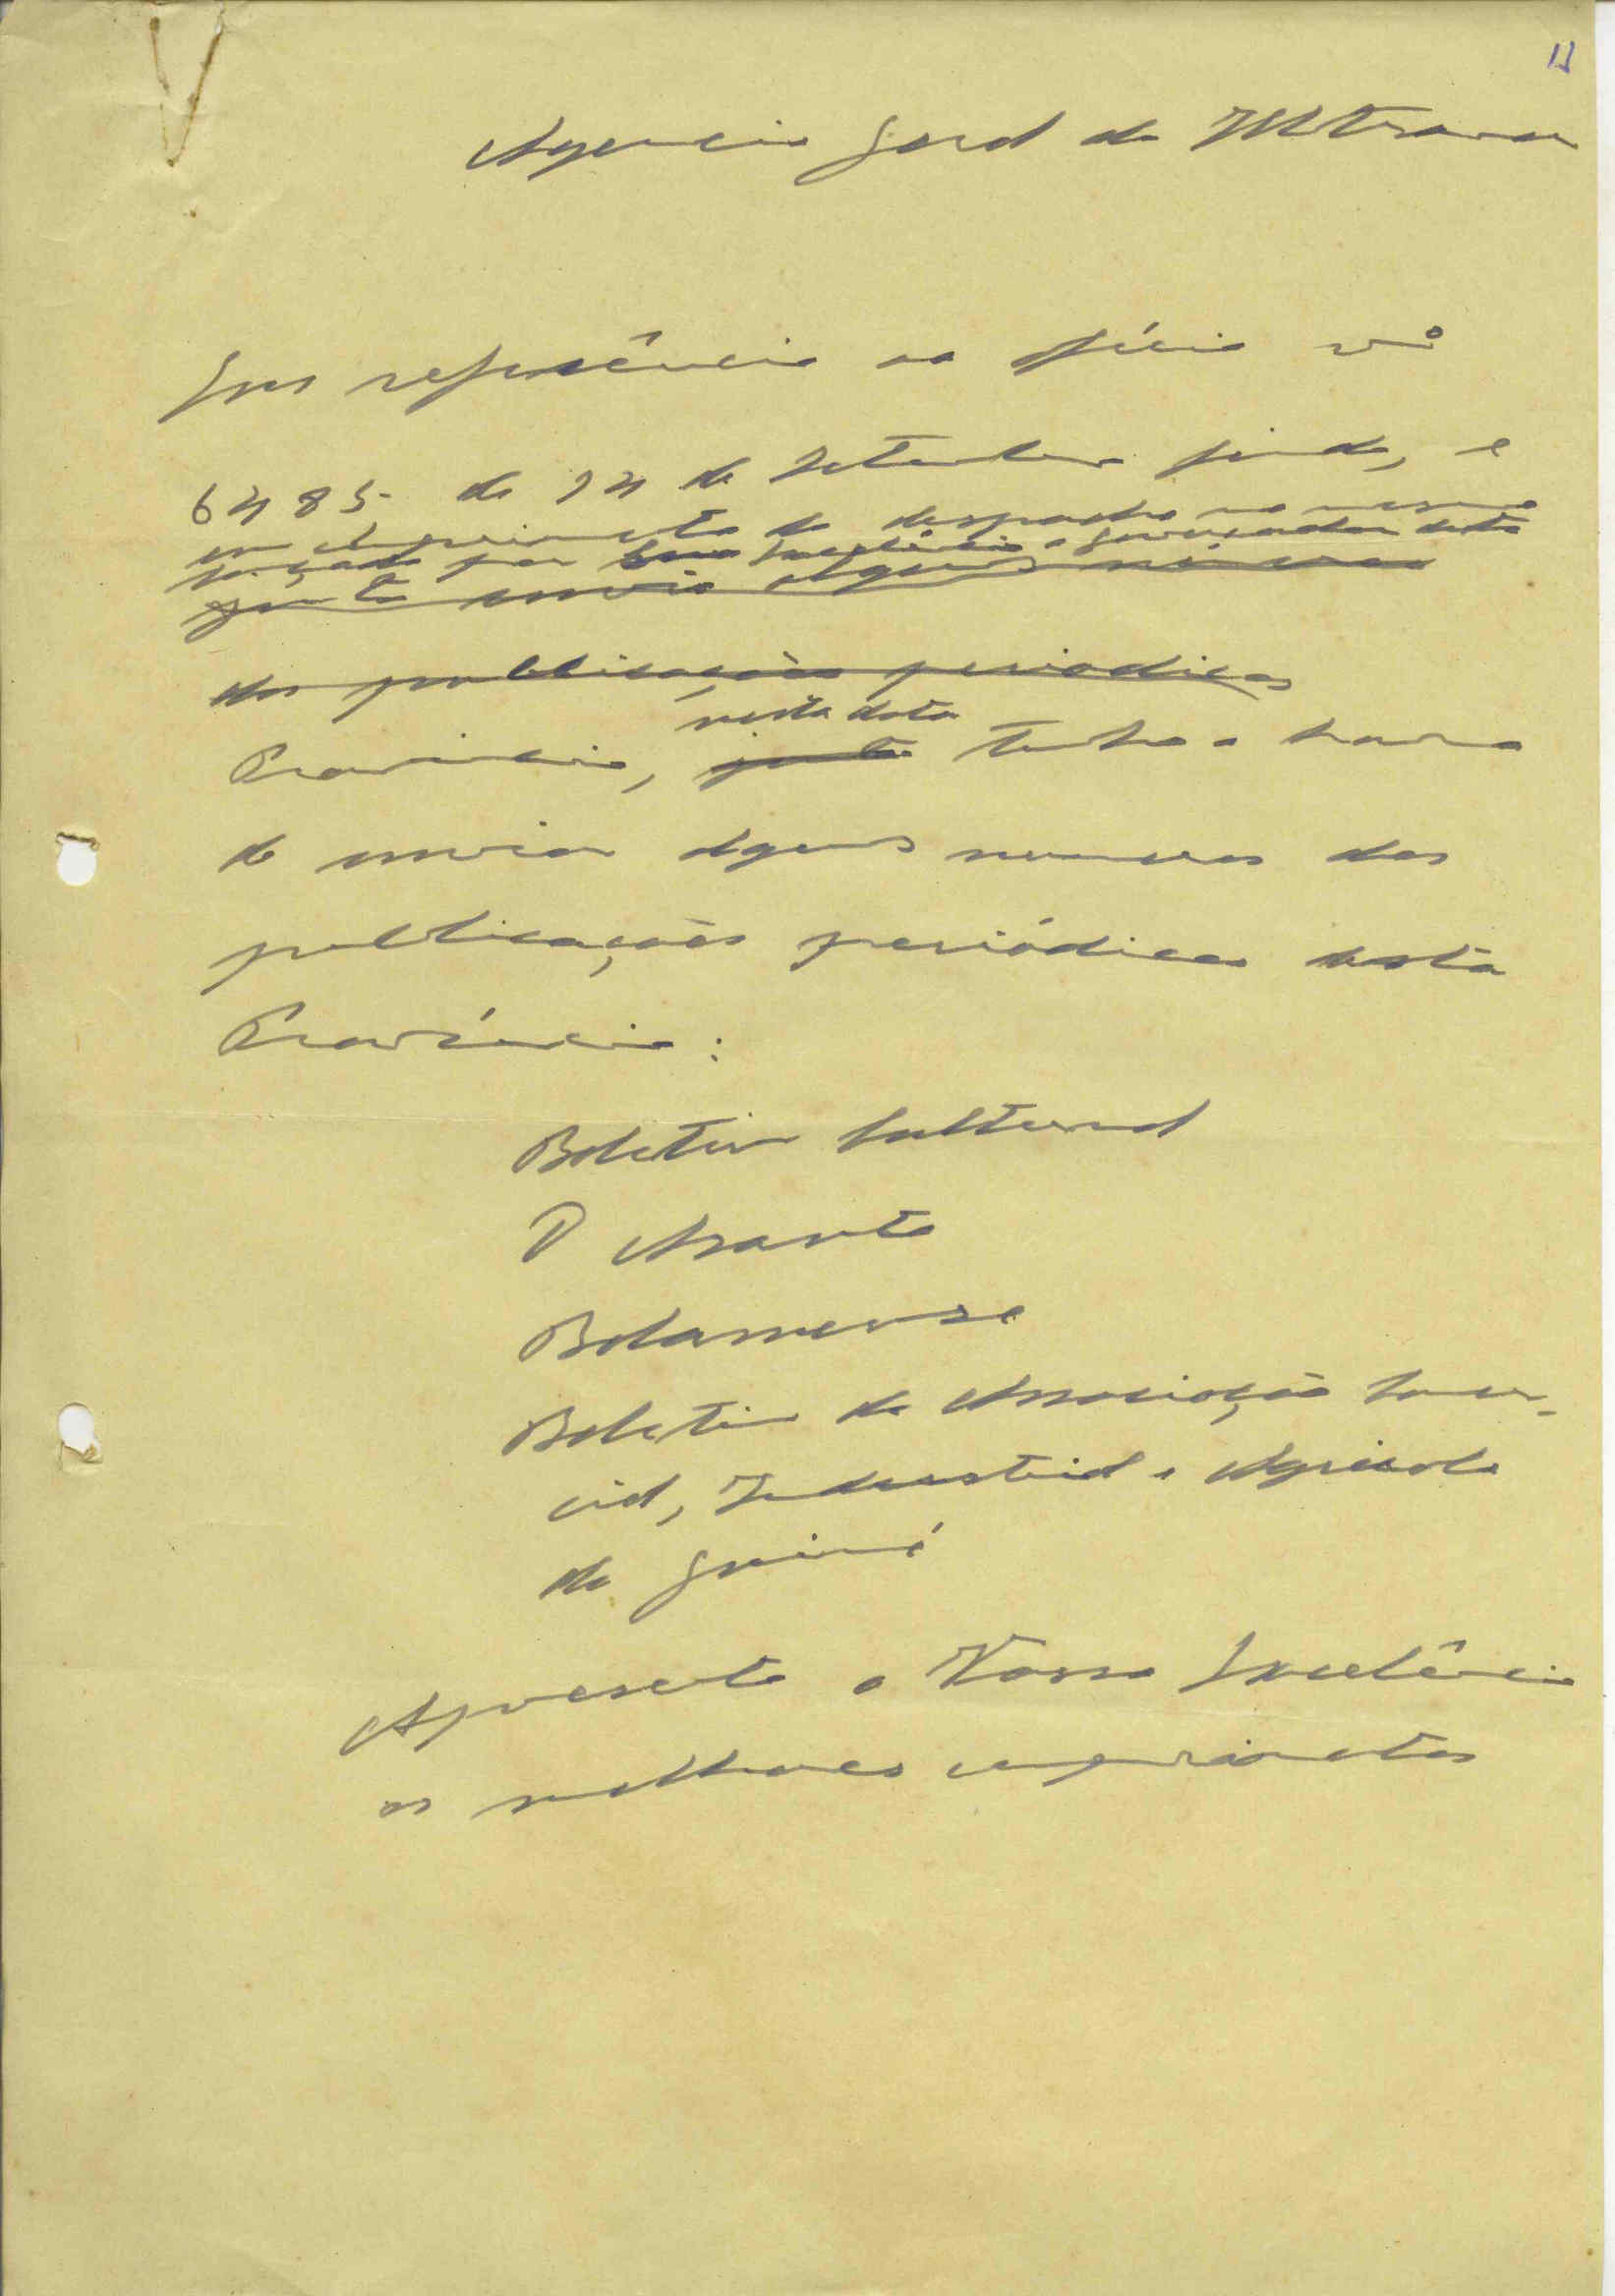 11
Agencia Geral do Ultramar
Com referência ao ofício nº
6485 de 14 de Setembro findo, e
em cumprimento do despacho no mesmo
lançado por Sua Excelência o Governador desta
junto envio alguns números
das publicações periodicas
nesta data
Provincia, junto tenho a honra
de enviar alguns numeros das
publicações periódicas desta
Província:
Boletim Cultural
O Arauto
Bolamense
Boletim da Associação Comer-
cial, Industrial e Agricola
da Guiné
Apresento a Vossa Excelência
os melhores cumprimentos